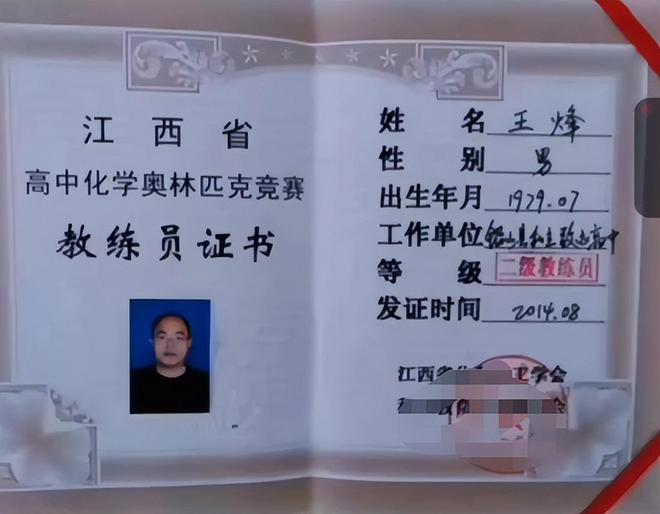 江西省
高中化学奥林匹克竞赛
教练员证书
姓名 王烽
性别 男
出生年月 1979.07
工作单位 铅山县私立致远高中
等级 二级教练员
发证时间 2014.08
江西省化 工学会